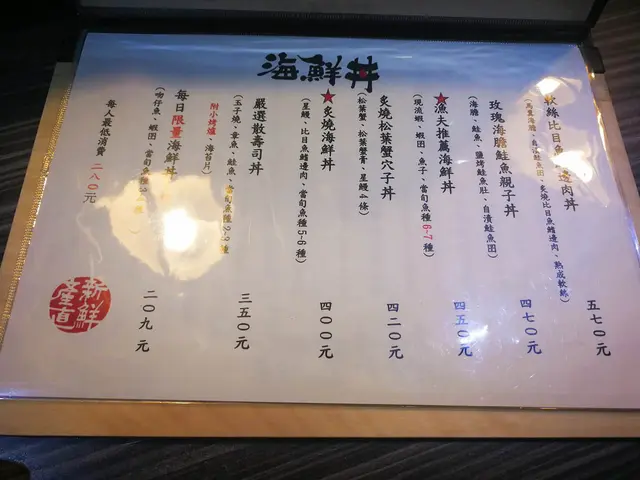 海鮮丼
軟絲比目魚 邊肉丼
自漬鮭魚囝、炙燒比目魚鰭邊肉、熟成軟絲)
五七0元
玫瑰海膽鮭魚親子丼
(海膽、鮭魚、鹽烤鮭魚肚、自漬鮭魚囝)
四七0元
★漁夫推薦海鮮丼
(現流蝦、蝦囝、魚子、當旬魚種6-7種)
四五0元
炙燒松葉蟹穴子丼
(松葉蟹、松葉蟹膏、星鰻4條)
四二0元
★炙燒海鮮丼
(星鰻、比目魚鰭邊肉、當旬魚種5-6種)
四00元
嚴選散壽司丼
(玉子燒、章魚、鮭魚、當旬魚種 種)
附小烤爐、海苔片)
三五0元
每日限量海鮮丼
(吻仔魚、蝦囝、當旬魚種
二0九元
每人最低消費 二八0元
新鮮
產直